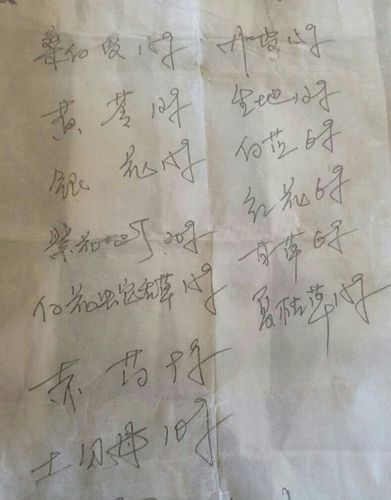 桑白皮15克 丹皮15克
黄芩12克 生地12克
银花15克 白芷6克
紫花地丁20克 红花6克
白花蛇舌草15克 甘草6克
夏枯草15克
赤芍
土贝母10克